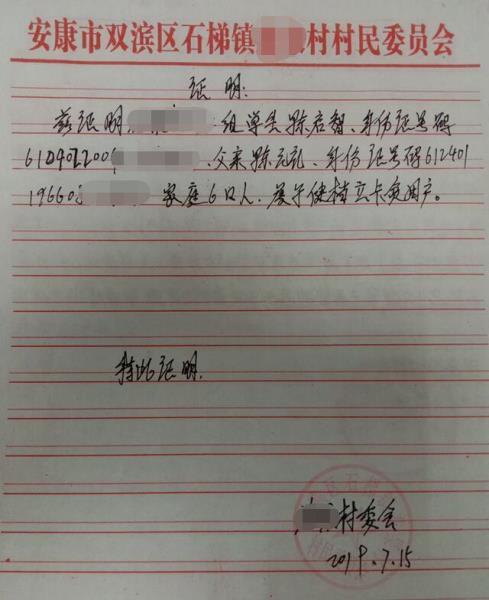 安康市双滨区石梯镇 村村民委员会
证明:
兹证明 组学生陈启智、身份证号码
612401200 、父亲陈元礼、身份证号码612401
19660 家庭6口人、属于健档立卡贫困户。
特此证明.
村委会
2019.7.15